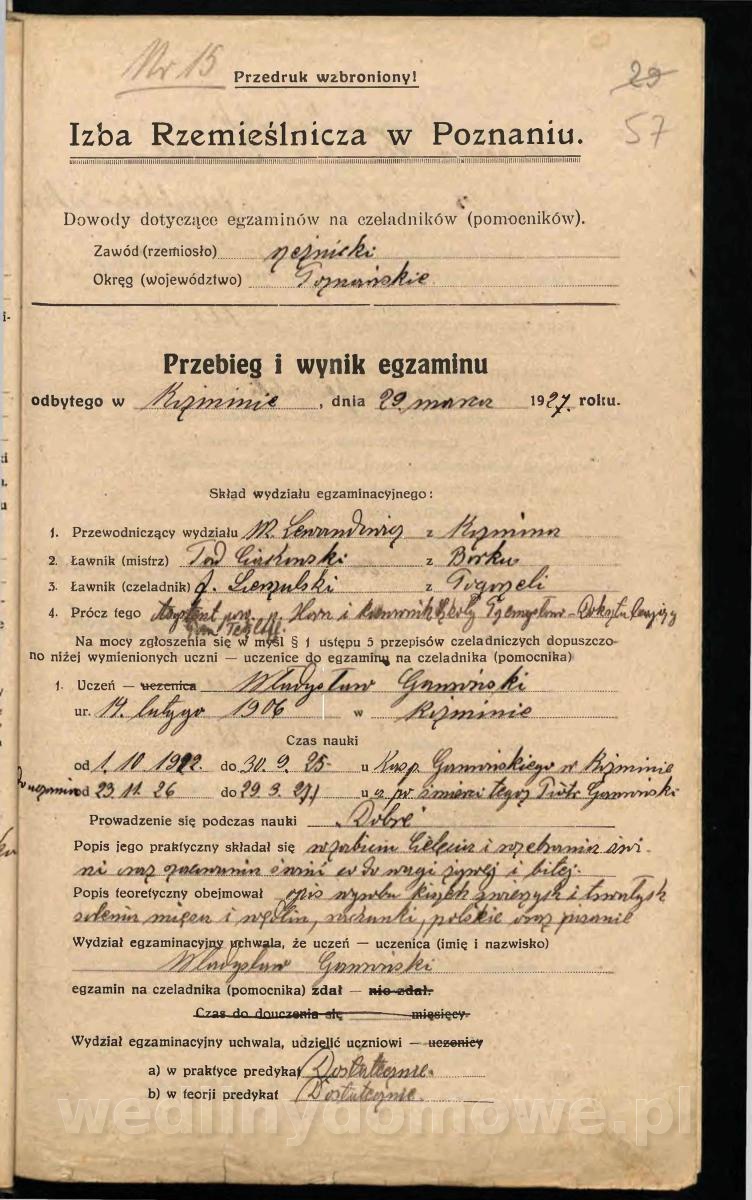 Nr 15
Przedruk wzbroniony!
29
57
Izba Rzemieślnicza w Poznaniu.
Dowody dotyczące egzaminów na czeladników (pomocników).
Zawód (rzemiosło) rzeźnicki
Okręg (województwo) Poznańskie
Przebieg i wynik egzaminu
odbytego w Koźminie, dnia 29. marca 1927. roku.
Skład wydziału egzaminacyjnego:
1. Przewodniczący wydziału W. Lewandowicz z Koźmina
2. Ławnik (mistrz) z Borku
3. Ławnik (czeladnik) z Pogorzeli
4. Prócz tego p. Horn i kierownik szkoły
Na mocy zgłoszenia się w myśl § 1 ustępu 5 przepisów czeladniczych dopuszczo-
no niżej wymienionych uczni — uczenice do egzaminu na czeladnika (pomocnika)
1. Uczeń — uczenica Władysław
ur. 14. lutego 1906 w Koźminie
Czas nauki
od 1. 10 1922. do 30. 9. 25- u Kasp. w Koźminie
od 23. 11. 26 do 29. 3. 27 u po śmierci tegoż Piotr
Prowadzenie się podczas nauki Dobre
Popis jego praktyczny składał się w zabiciu cielęcia i rozebrania świ-
ni oraz szacowania świni co do wagi żywej i bitej.
Popis teoretyczny obejmował opis wyrobu kiszek świeżych i trwałych
solenia mięsa i wędlin, rachunki, polskie oraz pisanie
Wydział egzaminacyjny uchwala, że uczeń — uczenica (imię i nazwisko)
Władysław
egzamin na czeladnika (pomocnika) zdał — nie zdał.
Czas do douczenia się miesięcy.
Wydział egzaminacyjny uchwala, udzielić uczniowi — uczenicy
a) w praktyce predykat Dostatecznie.
b) w teorji predykat Dostatecznie.
wedlinydomowe.pl